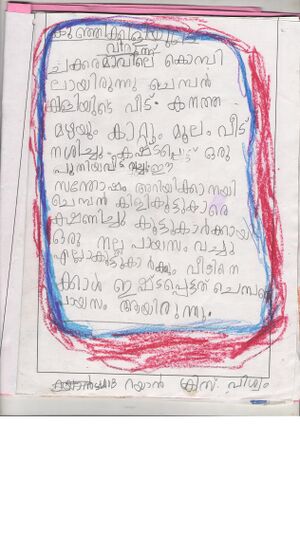 കുഞ്ഞിക്കിളിയുടെ
വീട്
ചക്കരമാവിലെ കൊമ്പി
ലായിരുന്നു ചെമ്പൻ
കിളിയുടെ വീട്. കനത്ത
മഴയും കാറ്റും മൂലം വീട്
നശിച്ചു. കഷ്ടപ്പെട്ട് ഒരു
പുതിയവീട് വച്ചു. ഈ
സന്തോഷം അറിയിക്കാനായി
ചെമ്പൻ കിളികൂട്ടുകാരെ
ക്ഷണിച്ചു കൂട്ടുകാർക്കായി
ഒരു നല്ല പായസം വച്ചു
എല്ലാകൂട്ടുകാർക്കും വീടിനെ
ക്കാൾ ഇഷ്ടപ്പെട്ടത് ചെമ്പന്റെ
പായസം ആയിരുന്നു.
റയാൻ ക്രിസ് വിശ്വം